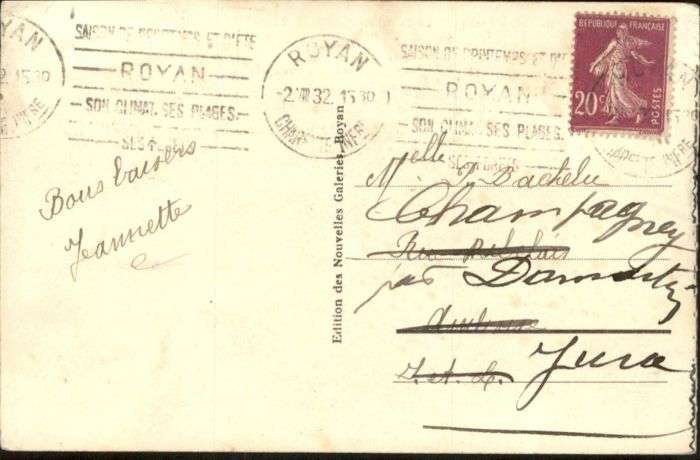 ROYAN
15 30
SAISON DE PRINTEMPS ET D'ETE
ROYAN
SON CLIMAT. SES PLAGES.
SES FORETS
ROYAN
-2 VIII 32. 15 30
CHARENTE INFRE
SAISON DE PRINTEMPS ET D'ETE
ROYAN
SON CLIMAT. SES PLAGES.
SES FORETS
REPUBLIQUE FRANÇAISE
20c
POSTES
Bons baisers
Jeannette
Edition des Nouvelles Galeries, Royan
Melle J. Bachelu
Champagney
Rue Rabelais
par Dammartin
Amboise
I. et L.
Jura